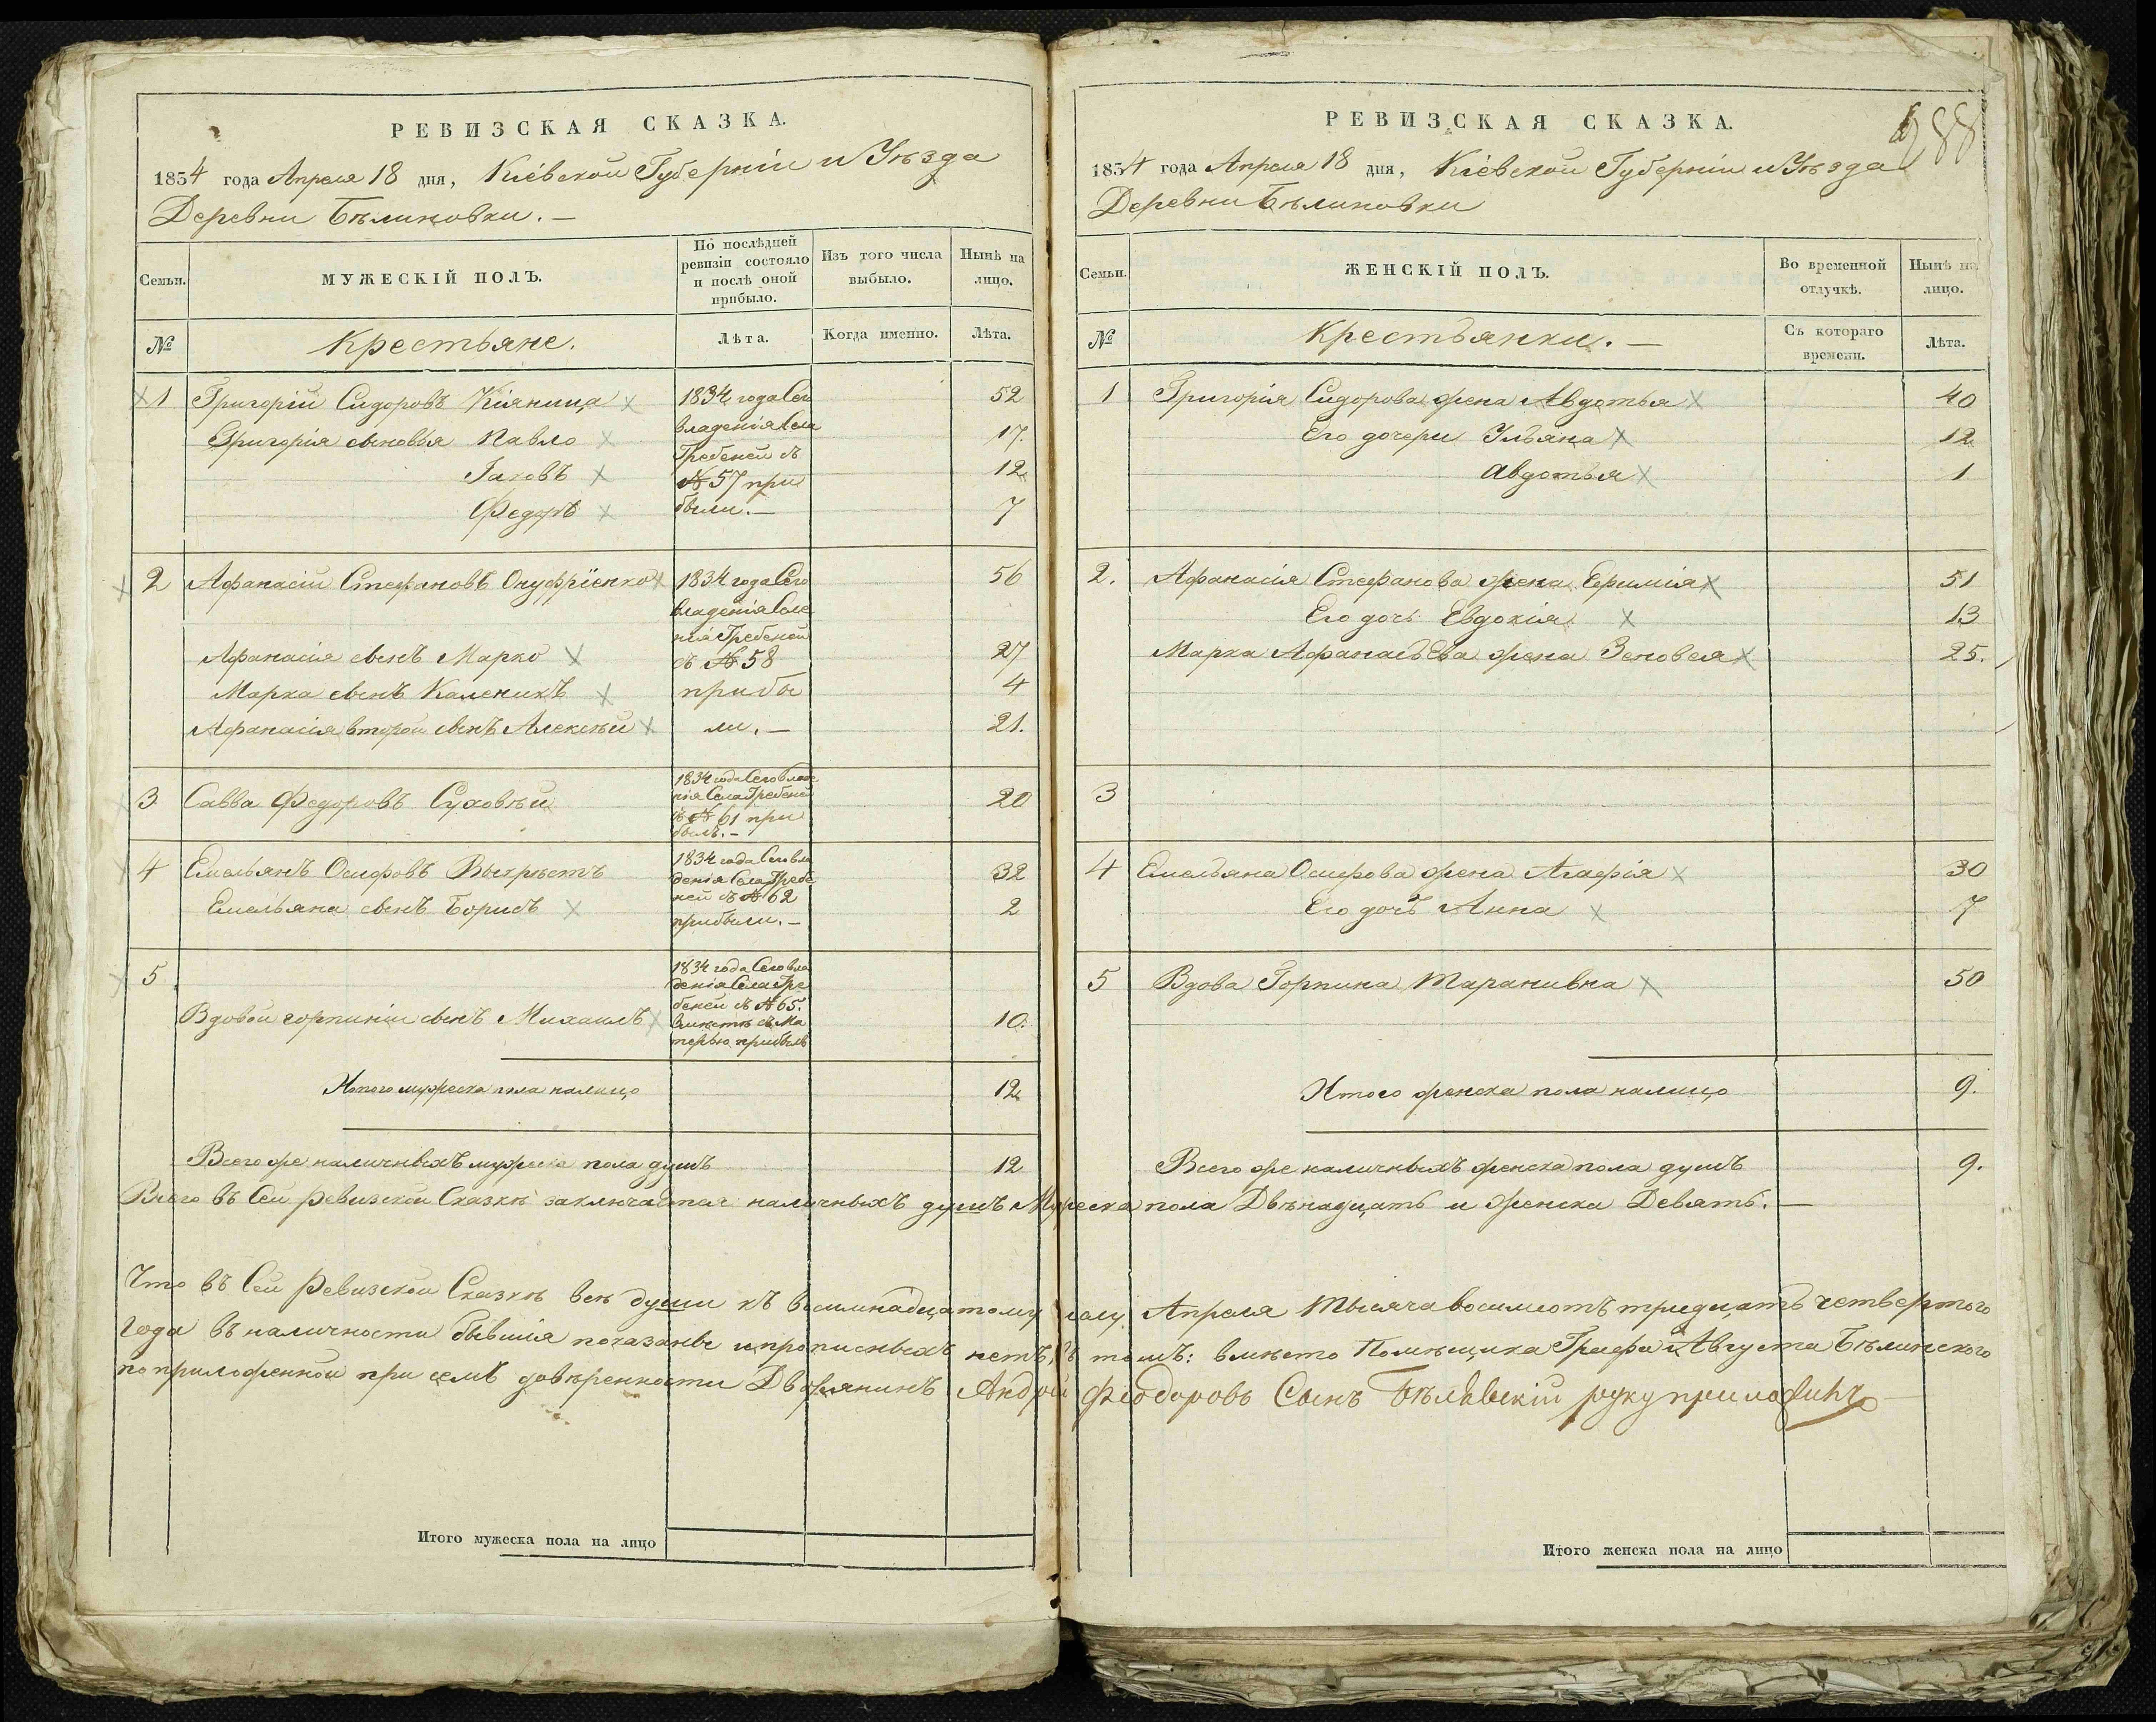 РЕВИЗСКАЯ СКАЗКА.
1834 года Апреля 18 дня, Кіевской Губерніи и Уѣзда
Деревни Бѣлиновки. —
Семьи.
МУЖЕСКІЙ ПОЛЪ.
По послѣдней ревизіи состояло и послѣ оной прибыло.
Изъ того числа выбыло.
Нынѣ на лицо.
№
Крестьяне.
Лѣта.
Когда именно.
Лѣта.
1 Григорій Сидоровъ Кіяница 52
1834 года Сего
владенія Села
Гребеней съ
№ 57 при
были. —
Григорія сыновья Павло 17.
Іаковъ 12
Федоръ 7
2 Афанасій Стефановъ Онуфріенко 56
1834 года Сего
владенія Селе
нія Гребеней
съ № 58
прибы
ли. —
Афанасія сынъ Марко 27
Марка сынъ Каленикъ 4
Афанасія второй сынъ Алексѣй 21.
3 Савва Федоровъ Суховѣй 20
1834 года Сего владе
нія Села Гребеней
съ № 61 при
былъ. —
4 Емельянъ Осифовъ Выхрѣстъ 32
1834 года Сего вла
денія Села Гребе
ней съ № 62
прибыли. —
Емельяна сынъ Борисъ 2
5
1834 года Сего вла
денія Села Гре
беней съ № 65.
вмѣстѣ съ Ма
терью прибылъ
Вдовой горпиніи сынъ Михаилъ 10.
Итого мужеска пола налицо 12
Всего же наличныхъ мужеска пола душъ 12
РЕВИЗСКАЯ СКАЗКА.
288
1834 года Апреля 18 дня, Кіевской Губерніи и Уѣзда
Деревни Бѣлиновки
Семьи.
ЖЕНСКІЙ ПОЛЪ.
Во временной отлучкѣ.
Нынѣ на лицо.
№
Крестьянки. —
Съ котораго времени.
Лѣта.
1 Григорія Сидорова жена Авдотья 40
Его дочери Ульяна 12
Авдотья 1
2. Афанасія Стефанова жена Ефимія 51
Его дочь Евдокія 13
Марка Афанасьева жена Зеновея 25.
3
4 Емельяна Осифова жена Агафія 30
Его дочь Анна 7
5 Вдова Горпина Таранивна 50
Итого женска пола налицо 9.
Всего же наличныхъ женска пола душъ 9.
Всего въ Сей ревизской Сказкѣ заключается наличныхъ душъ Мужеска пола Двѣнадцать и женска Девять. —
Что въ Сей Ревизской Сказкѣ всѣ души къ восимнадцатому числу Апреля тысяча восимсотъ тридцать четвертого
Года въ наличности бывшія показаны и прописныхъ нетъ, въ томъ: вмѣсто Помѣщика Графа Августа Бѣлинского
по приложенной при семъ довѣренности Дворянинъ Андрей Феодоровъ Сынъ Бѣлѣвскій руку приложилъ
Итого мужеска пола на лицо
Итого женска пола на лицо